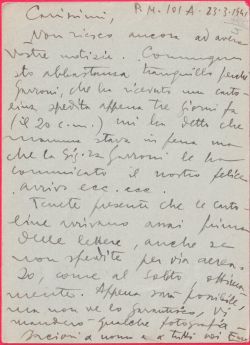 Carissimi, P.M. 101 A - 23-3-1941
Non riesco ancora ad avere
vostre notizie. Comunque
sto abbastanza tranquillo perché
Garroni, che ha ricevuto una carto-
lina spedita appena tre giorni fa
(il 20 c.m.) mi ha detto che
mamma stava in pena ma
che la Sig.ra Garroni le ha
comunicato il nostro felice
arrivo ecc. ecc.
Tenete presente che le carto-
line arrivano assai prima
delle lettere, anche se
non spedite per via aerea.
Io, come al solito
Appena sarà possibile,
ma non ve lo garantisco, vi
manderò qualche fotografia.
Bacioni a nonna e a tutti voi